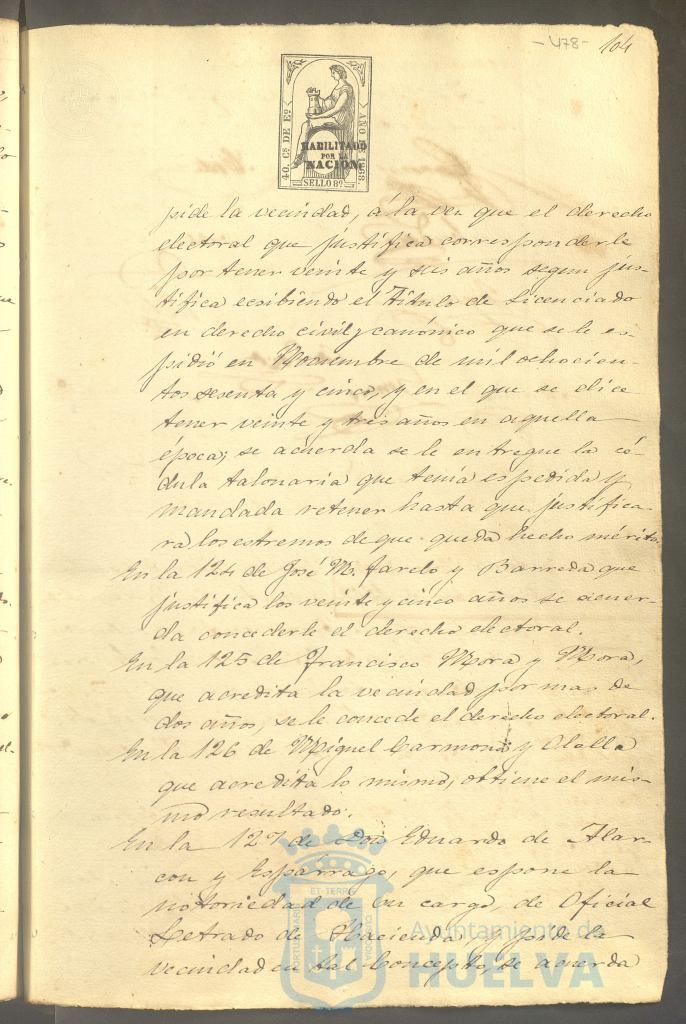 - 478 - 104
40. Cs DE Eo
AÑO DE 1868.
HABILITADO
POR LA
NACION.
SELLO 8º
pide la vecindad, á la vez que el derecho
electoral que justifica corresponderle
por tener veinte y seis años segun jus-
tifica ecsibiendo el Título de Licenciado
en derecho civil y canónico que se le es-
pidió en Noviembre de mil ochocien
tos sesenta y cinco, y en el que se dice
tener veinte y tres años en aquella
época; se acuerda se le entregue la cé-
dula talonaria que tenia espedida y
mandada retener hasta que justifica-
ra los estremos de que queda hecho mérito.
En la 124 de José M. Jarelo y Barreda que
justifica los veinte y cinco años se acuer-
da concederle el derecho electoral.
En la 125 de Francisco Mora y Mora,
que acredita la vecindad por mas de
dos años, se le concede el derecho electoral.
En la 126 de Miguel Carmona y Olalla
que acredita lo mismo, obtiene el mis-
mo resultado.
En la 127 de Don Eduardo de Alar-
con y Esparrago, que espone la
notoriedad de su cargo, de Oficial
Letrado de Hacienda, y pide la
vecindad en tal concepto, se acuerda
ET TERRE
Ayuntamiento de
HUELVA